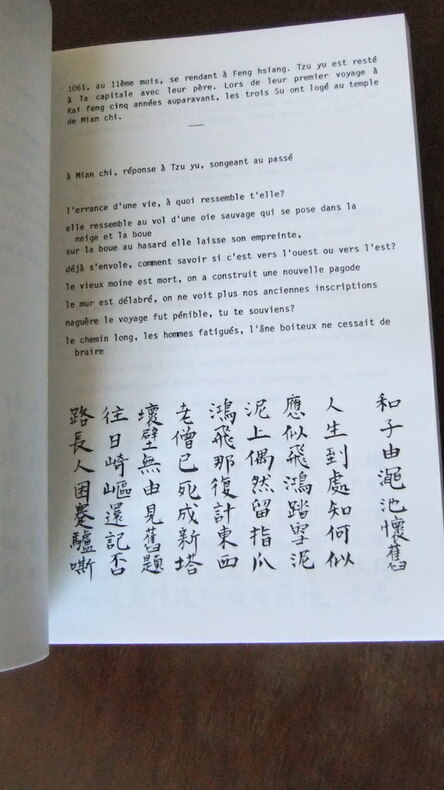 1061, au 11ème mois, se rendant à Feng hsiang. Tzu yu est resté
à la capitale avec leur père. Lors de leur premier voyage à
Kai feng cinq années auparavant, les trois Su ont logé au temple
de Mian chi.
à Mian chi, réponse à Tzu yu, songeant au passé
l'errance d'une vie, à quoi ressemble t'elle?
elle ressemble au vol d'une oie sauvage qui se pose dans la
neige et la boue
sur la boue au hasard elle laisse son empreinte,
déjà s'envole, comment savoir si c'est vers l'ouest ou vers l'est?
le vieux moine est mort, on a construit une nouvelle pagode
le mur est délabré, on ne voit plus nos anciennes inscriptions
naguère le voyage fut pénible, tu te souviens?
le chemin long, les hommes fatigués, l'âne boiteux ne cessait de
braire
和子由澠池懷舊
人生到處知何似
應似飛鴻踏雪泥
泥上偶然留指爪
鴻飛那復計東西
老僧已死成新塔
壞壁無由見舊題
往日崎嶇還記否
路長人困蹇驢嘶